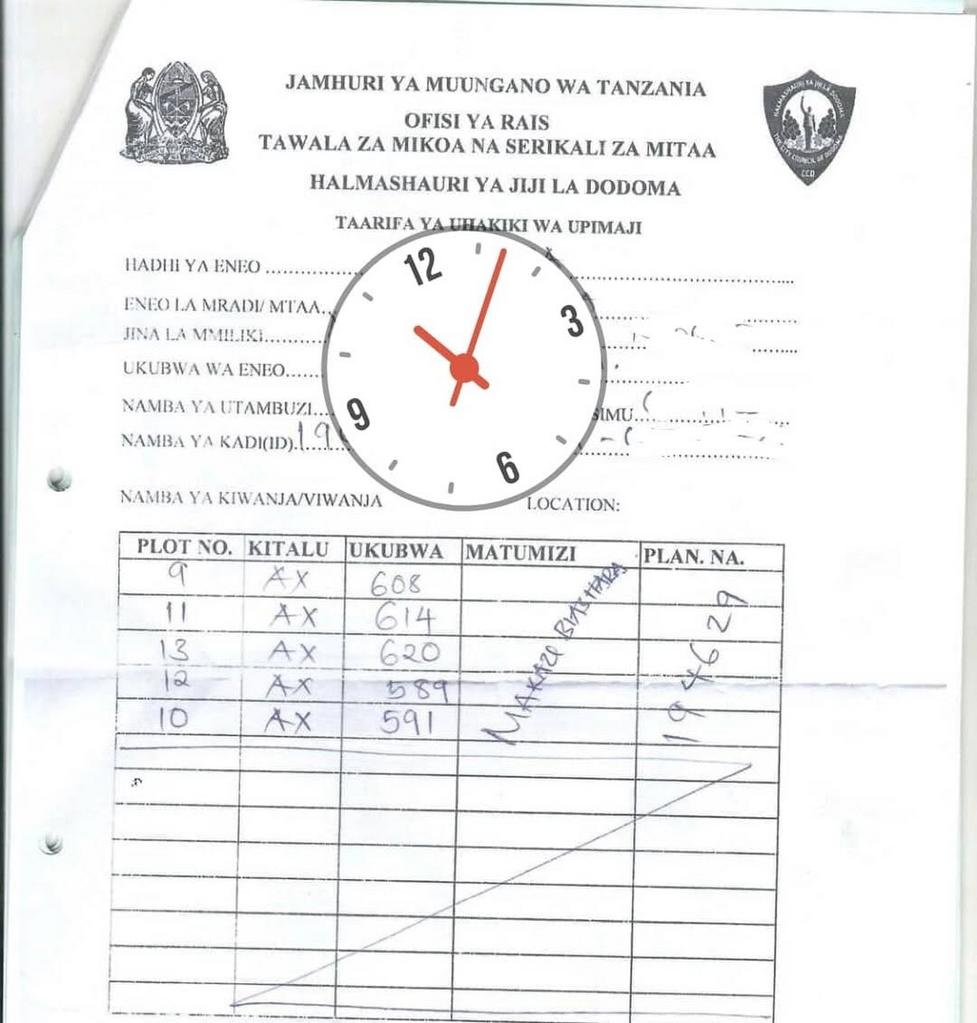 JAMHURI YA MUUNGANO WA TANZANIA
OFISI YA RAIS
TAWALA ZA MIKOA NA SERIKALI ZA MITAA
HALMASHAURI YA JIJI LA DODOMA
HALMASHAURI YA JIJI LA DODOMA
THE CITY COUNCIL OF DODOMA
C.C.D.
TAARIFA YA UHAKIKI WA UPIMAJI
HADHI YA ENEO
ENEO LA MRADI/ MTAA
JINA LA MMILIKI
UKUBWA WA ENEO
NAMBA YA UTAMBUZI SIMU
NAMBA YA KADI(ID)
12
3
6
9
NAMBA YA KIWANJA/VIWANJA LOCATION:
PLOT NO. KITALU UKUBWA MATUMIZI PLAN. NA.
9 AX 608
11 AX 614
13 AX 620
12 AX 589
10 AX 591
MAKAZI BIASHARA
1946 29